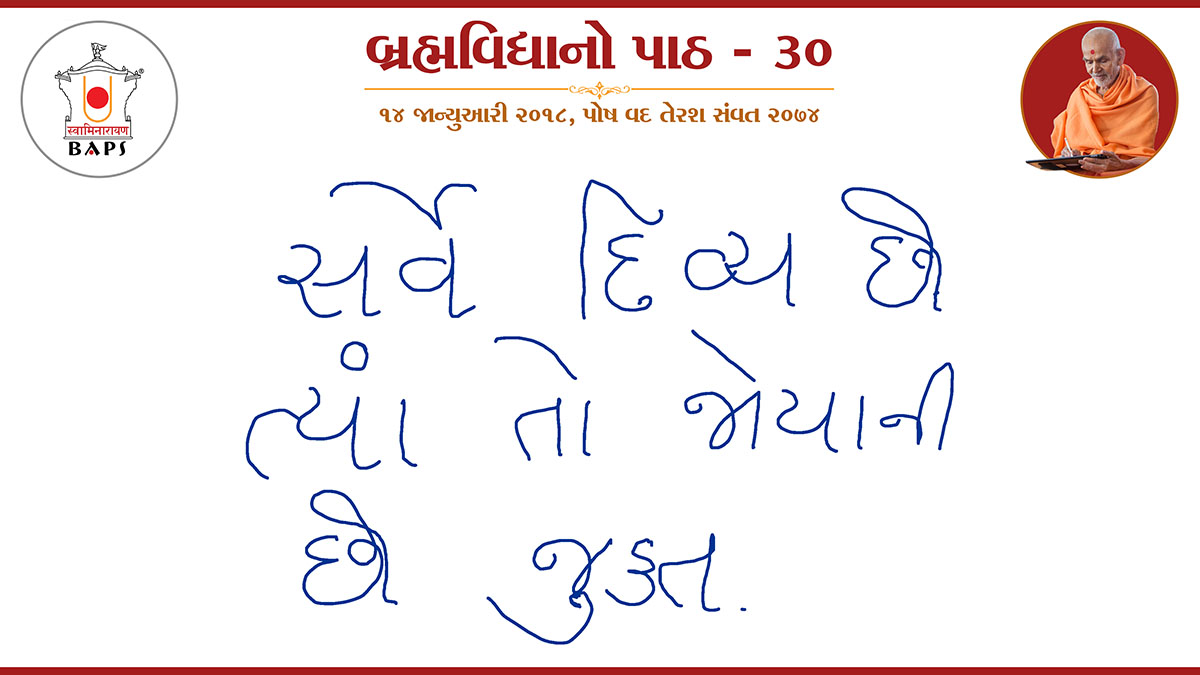 બ્રહ્મવિદ્યાનો પાઠ - ૩૦
૧૪ જાન્યુઆરી ૨૦૧૮, પોષ વદ તેરશ સંવત ૨૦૭૪
स्वामिनारायण
BAPS
સર્વે દિવ્ય છે
ત્યાં તો જોયાની
છે જુક્ત.